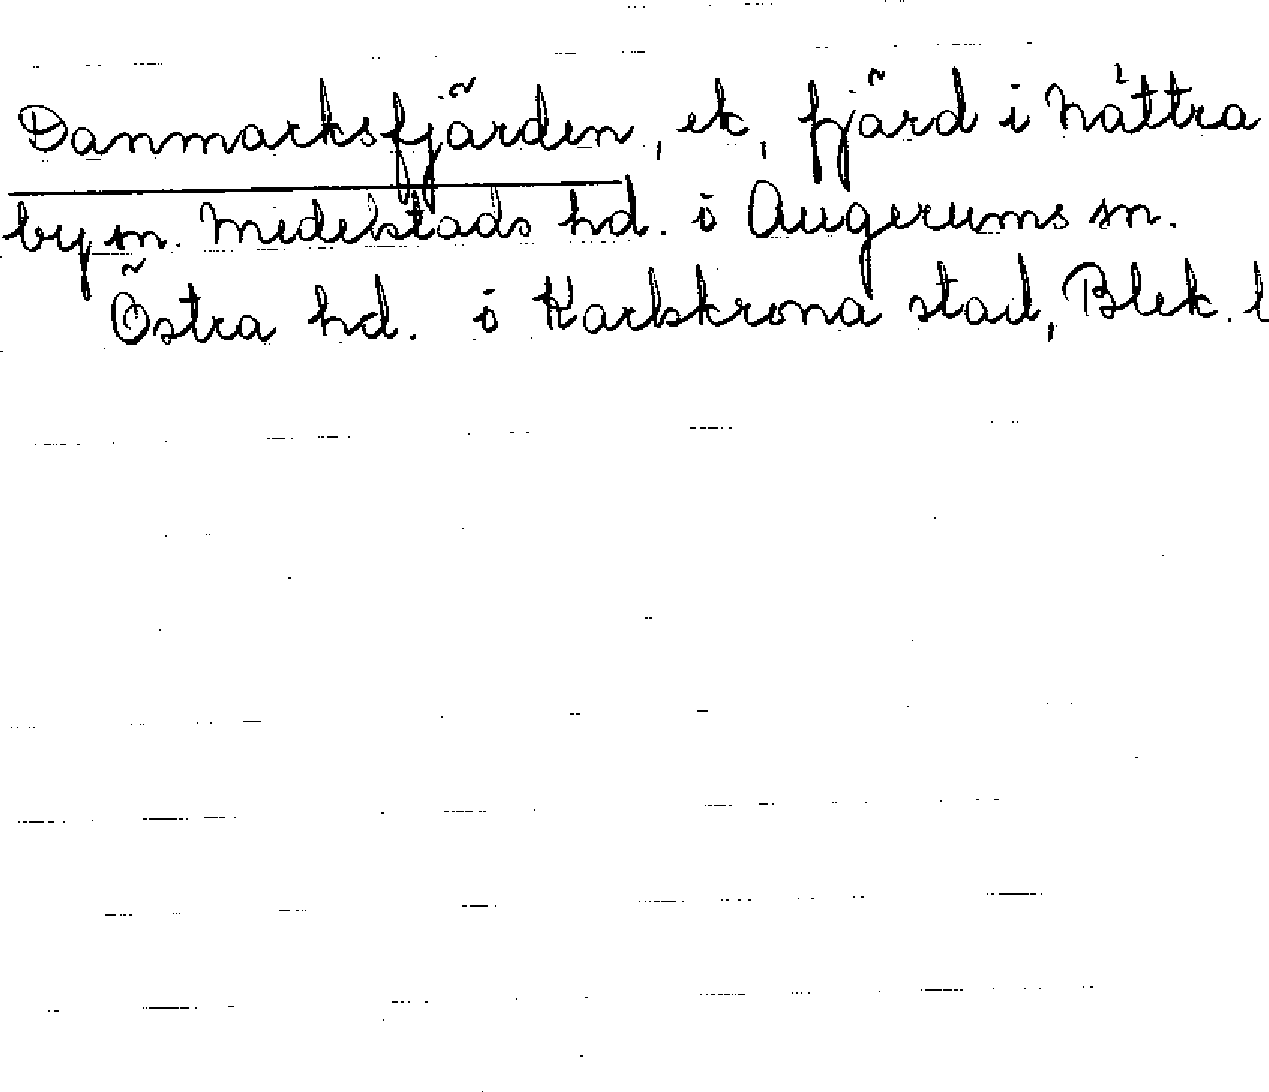 Danmarksfjärden, ek, fjärd i Nättra
by sn. Medelstads hd. i Augerums sn.
Östra hd. i Karlskrona stad, Blek. l